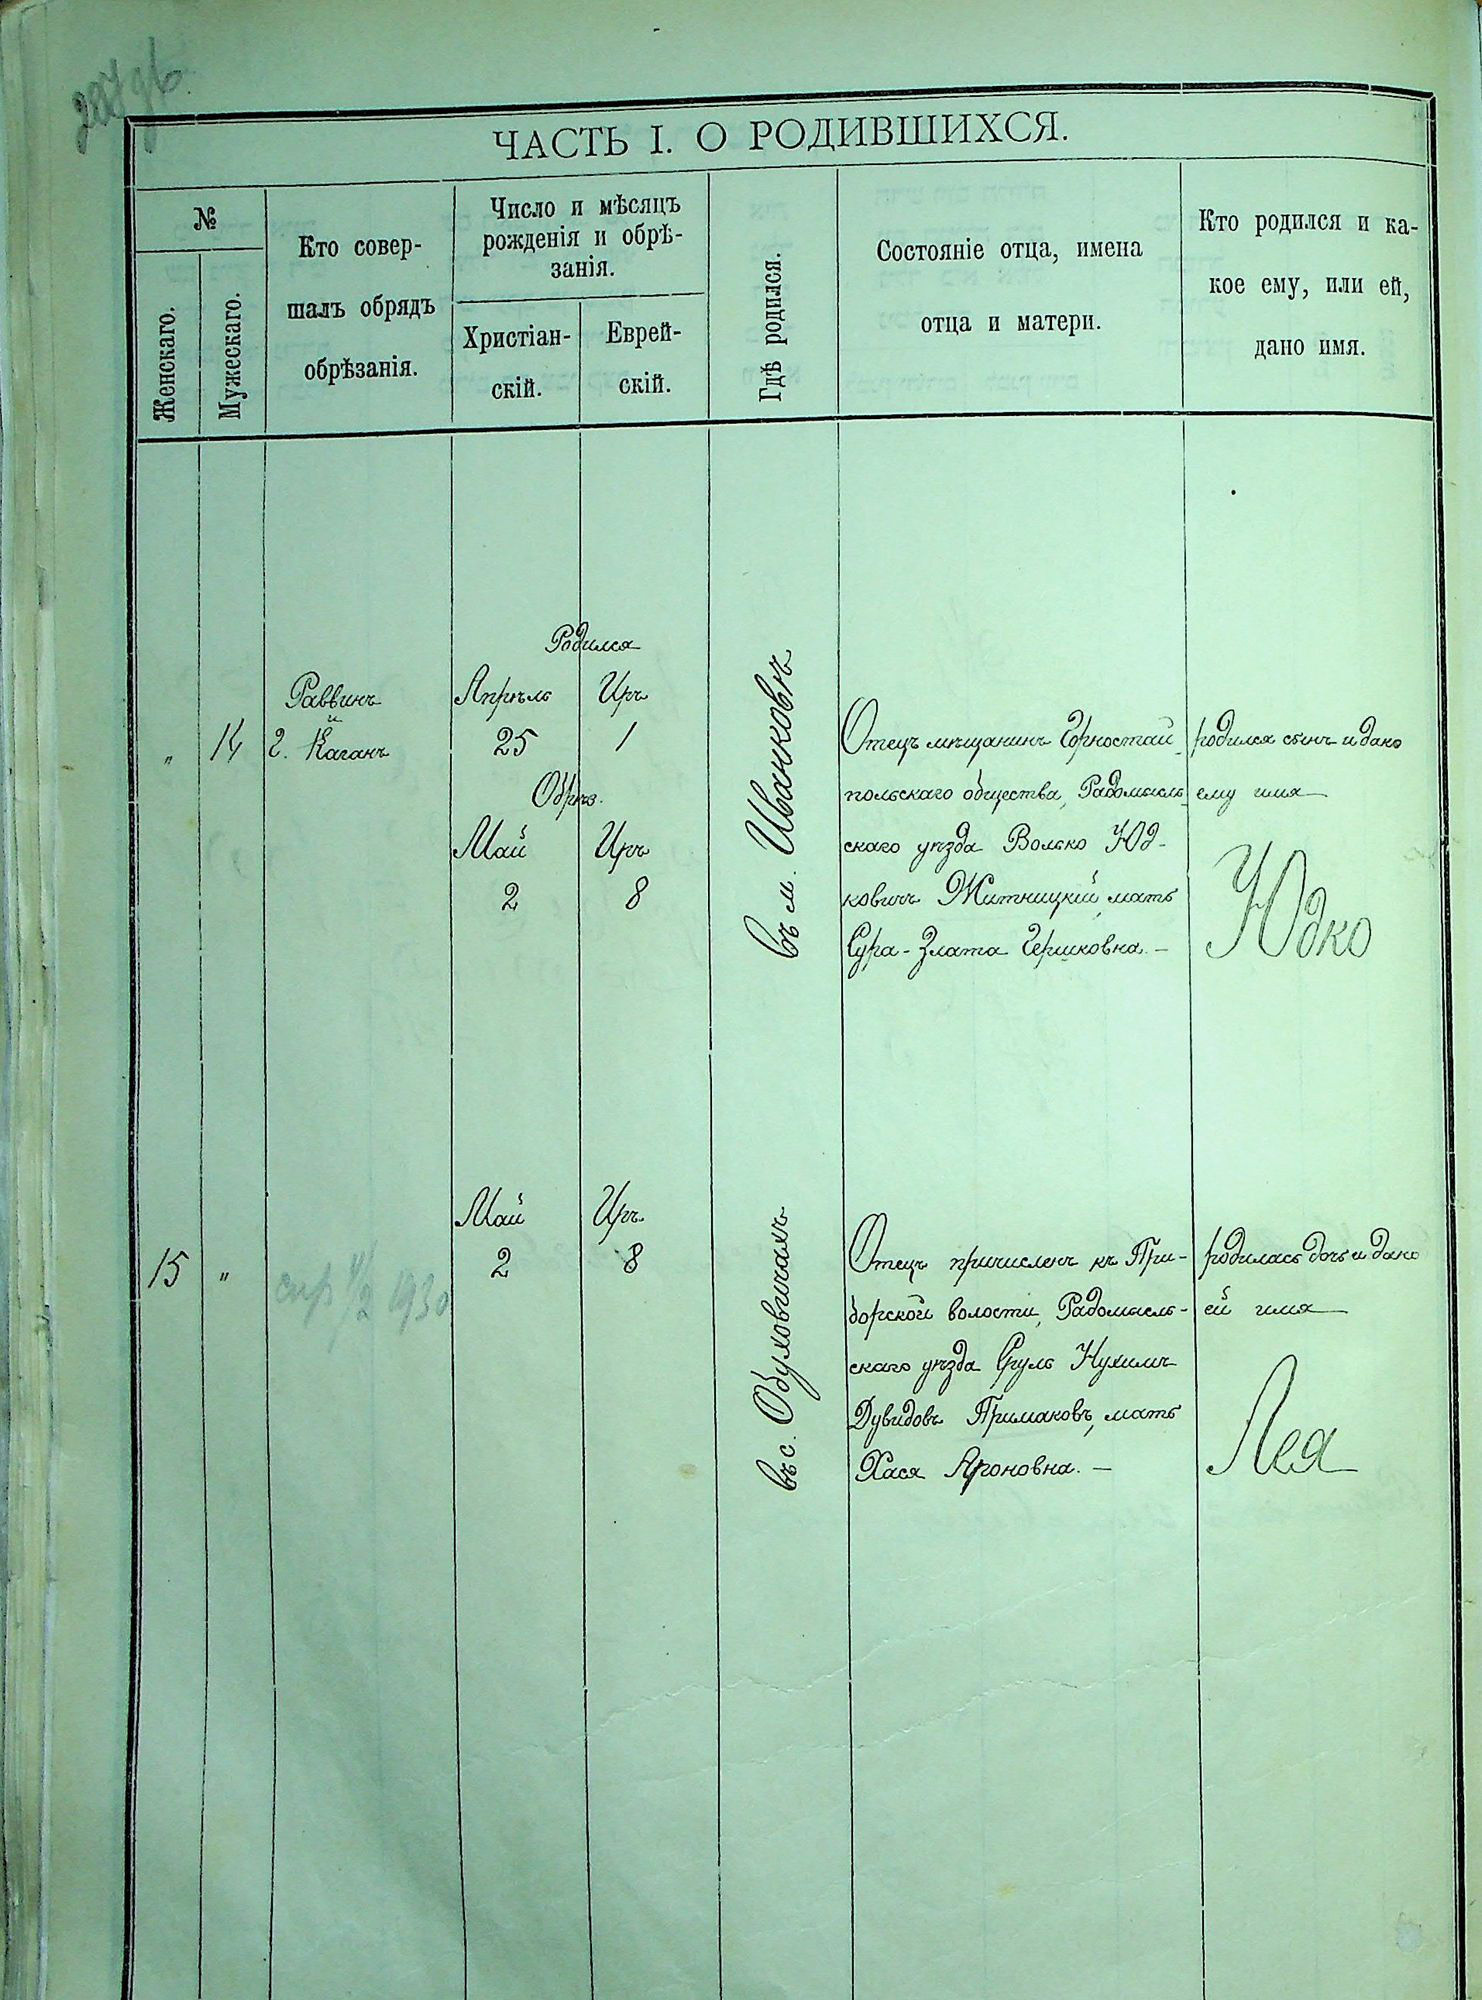 ЧАСТЬ I. О РОДИВШИХСЯ.
№
Женскаго.
Мужескаго.
Кто совер-
шалъ обрядъ
обрѣзанія.
Число и мѣсяцъ
рожденія и обрѣ-
занія.
Христіан-
скій.
Еврей-
скій.
Гдѣ родился.
Состояніе отца, имена
отца и матери.
Кто родился и ка-
кое ему, или ей,
дано имя.
"
14
Раввинъ
и
г. Каганъ
Родился
Апрѣль Иръ
25 1
Обрѣз.
Май Иръ
2 8
въ м. Иванковѣ
Отецъ мѣщанинъ Горностай-
польскаго общества, Радомысль-
скаго уѣзда Волько Юд-
ковичъ Житницкій, мать
Сура-Злата Гершковна. —
родился сынъ и дано
ему имя —
Юдко
15
"
1930
Май Иръ
2 8
въ с. Обуховичахъ
Отецъ причисленъ къ При-
борской волости, Радомысль-
скаго уѣзда Сруль Нухимъ
Дувидовъ Примаковъ, мать
Хася Ароновна. —
родилась дочь и дано
ей имя —
Лея